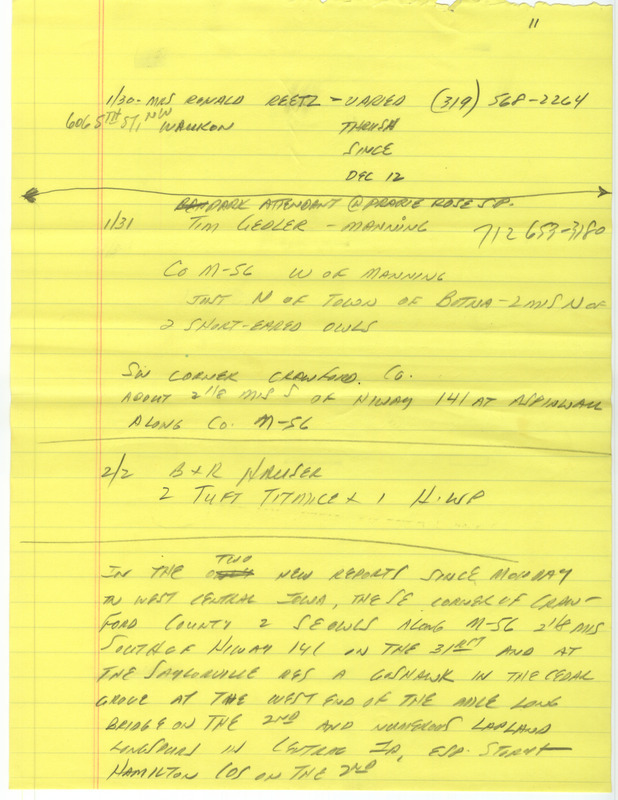 11
1/30- MRS RONALD REETZ - VARIED (319) 568-2264
606 5TH ST, NW WAUKON THRUSH
SINCE
DEC 12
PARK ATTENDANT @ PRARIE ROSE S.P.
1/31 TIM GEDLER - MANNING 712 653-3180
CO M-56 W OF MANNING
JUST N OF TOWN OF BOTNA - 2 MIS N OF
2 SHORT-EARED OWLS
SW CORNER CRAWFORD CO.
ABOUT 2 1/8 MIS S OF HIWAY 141 AT ASPINWALL
ALONG CO. M-56
2/2 B + R HAUSER
2 TUFT TITMICE + 1 H. WP
IN THE TWO NEW REPORTS SINCE MONDAY
IN WEST CENTRAL IOWA, THE SE CORNER OF CRAW-
FORD COUNTY 2 SEOWLS ALONG M-56 2 1/8 MIS
SOUTH OF HIWAY 141 ON THE 31RST AND AT
THE SAYLORVILLE RES A GOSHAWK IN THE CEDAR
GROVE AT THE WEST END OF THE MILE LONG
BRIDGE ON THE 2ND AND NUMEROUS LAPLAND
LONGSPURS IN CENTRAL IA, ESP. STORY +
HAMILTON COS ON THE 2ND